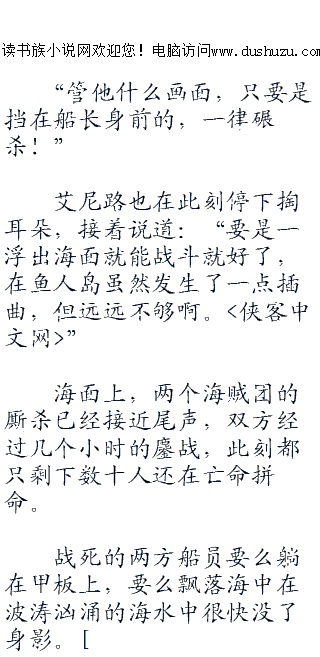 读书族小说网欢迎您！电脑访问www.dushuzu.com
“管他什么画面，只要是
挡在船长身前的，一律碾
杀！”
艾尼路也在此刻停下掏
耳朵，接着说道：“要是一
浮出海面就能战斗就好了，
在鱼人岛虽然发生了一点插
曲，但远远不够啊。<侠客中
文网>”
海面上，两个海贼团的
厮杀已经接近尾声，双方经
过几个小时的鏖战，此刻都
只剩下数十人还在亡命拼
命。
战死的两方船员要么躺
在甲板上，要么飘落海中在
波涛汹涌的海水中很快没了
身影。[